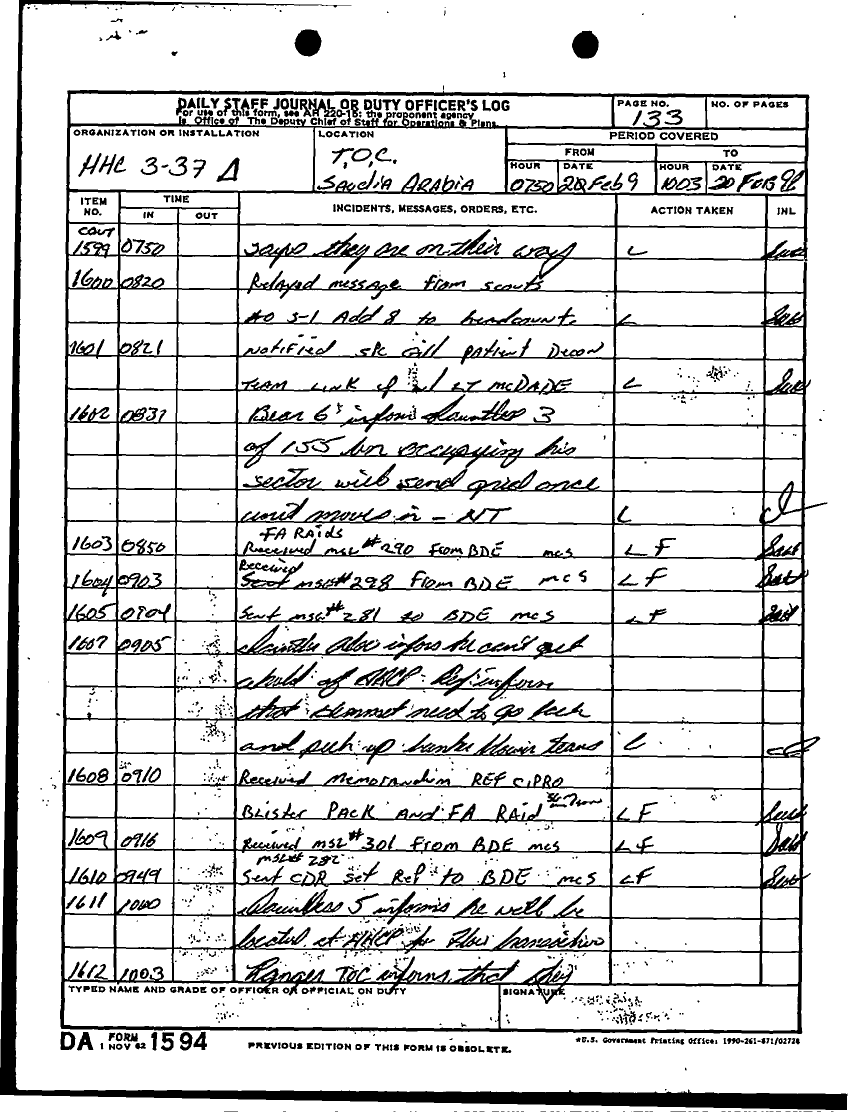 DAILY STAFF JOURNAL OR DUTY OFFICER'S LOG
For use of this form, see AR 220-15; the proponent agency
is Office of The Deputy Chief of Staff for Operations & Plans.
PAGE NO.
133
NO. OF PAGES
ORGANIZATION OR INSTALLATION
HHC 3-37 Δ
LOCATION
T.O.C.
SAUDIA ARABIA
PERIOD COVERED
FROM
TO
HOUR
DATE
HOUR
DATE
0750
20 Feb 9
1003
20 FEB 91
ITEM NO.
TIME
IN
OUT
INCIDENTS, MESSAGES, ORDERS, ETC.
ACTION TAKEN
INL
CONT
1599 0750 says they are on their way L
1600 0820 Relayed message from scouts
to S-1 Add 8 to headcount. L
1601 0821 Notified SPC Gill patient Decon
TEAM LINK up w/ LT McDADE L
1602 0837 Bear 6 informs Dauntless 3
of 155 bn occupying his
sector will send grid once
unit moves in - NT L
FA RAIDS
1603 0850 Received msg # 290 From BDE mcs LF
Received
1604 0903 Sent msg# 298 From BDE mcs LF
1605 0904 Sent msg# 281 to BDE mcs LF
1607 0905 informs he can't get
ahold of HHCP. Ref inform
that Hemmet need to go back
and pick up bunker blower teams L
1608 0910 Received Memorandum REF CIPRO
BLISTER PACK AND FA RAID LF
1609 0916 Received msg # 301 From BDE mcs LF
msg# 282
1610 0949 Sent CDR sit Rep to BDE mcs LF
1611 1000 Dauntless 5 informs he will be
located at HHCP for
1612 1003 Ranger TOC informs that
TYPED NAME AND GRADE OF OFFICER OR OFFICIAL ON DUTY
SIGNATURE
DA FORM 1 NOV 62 1594
PREVIOUS EDITION OF THIS FORM IS OBSOLETE.
*U.S. Government Printing Office: 1990-261-871/02728